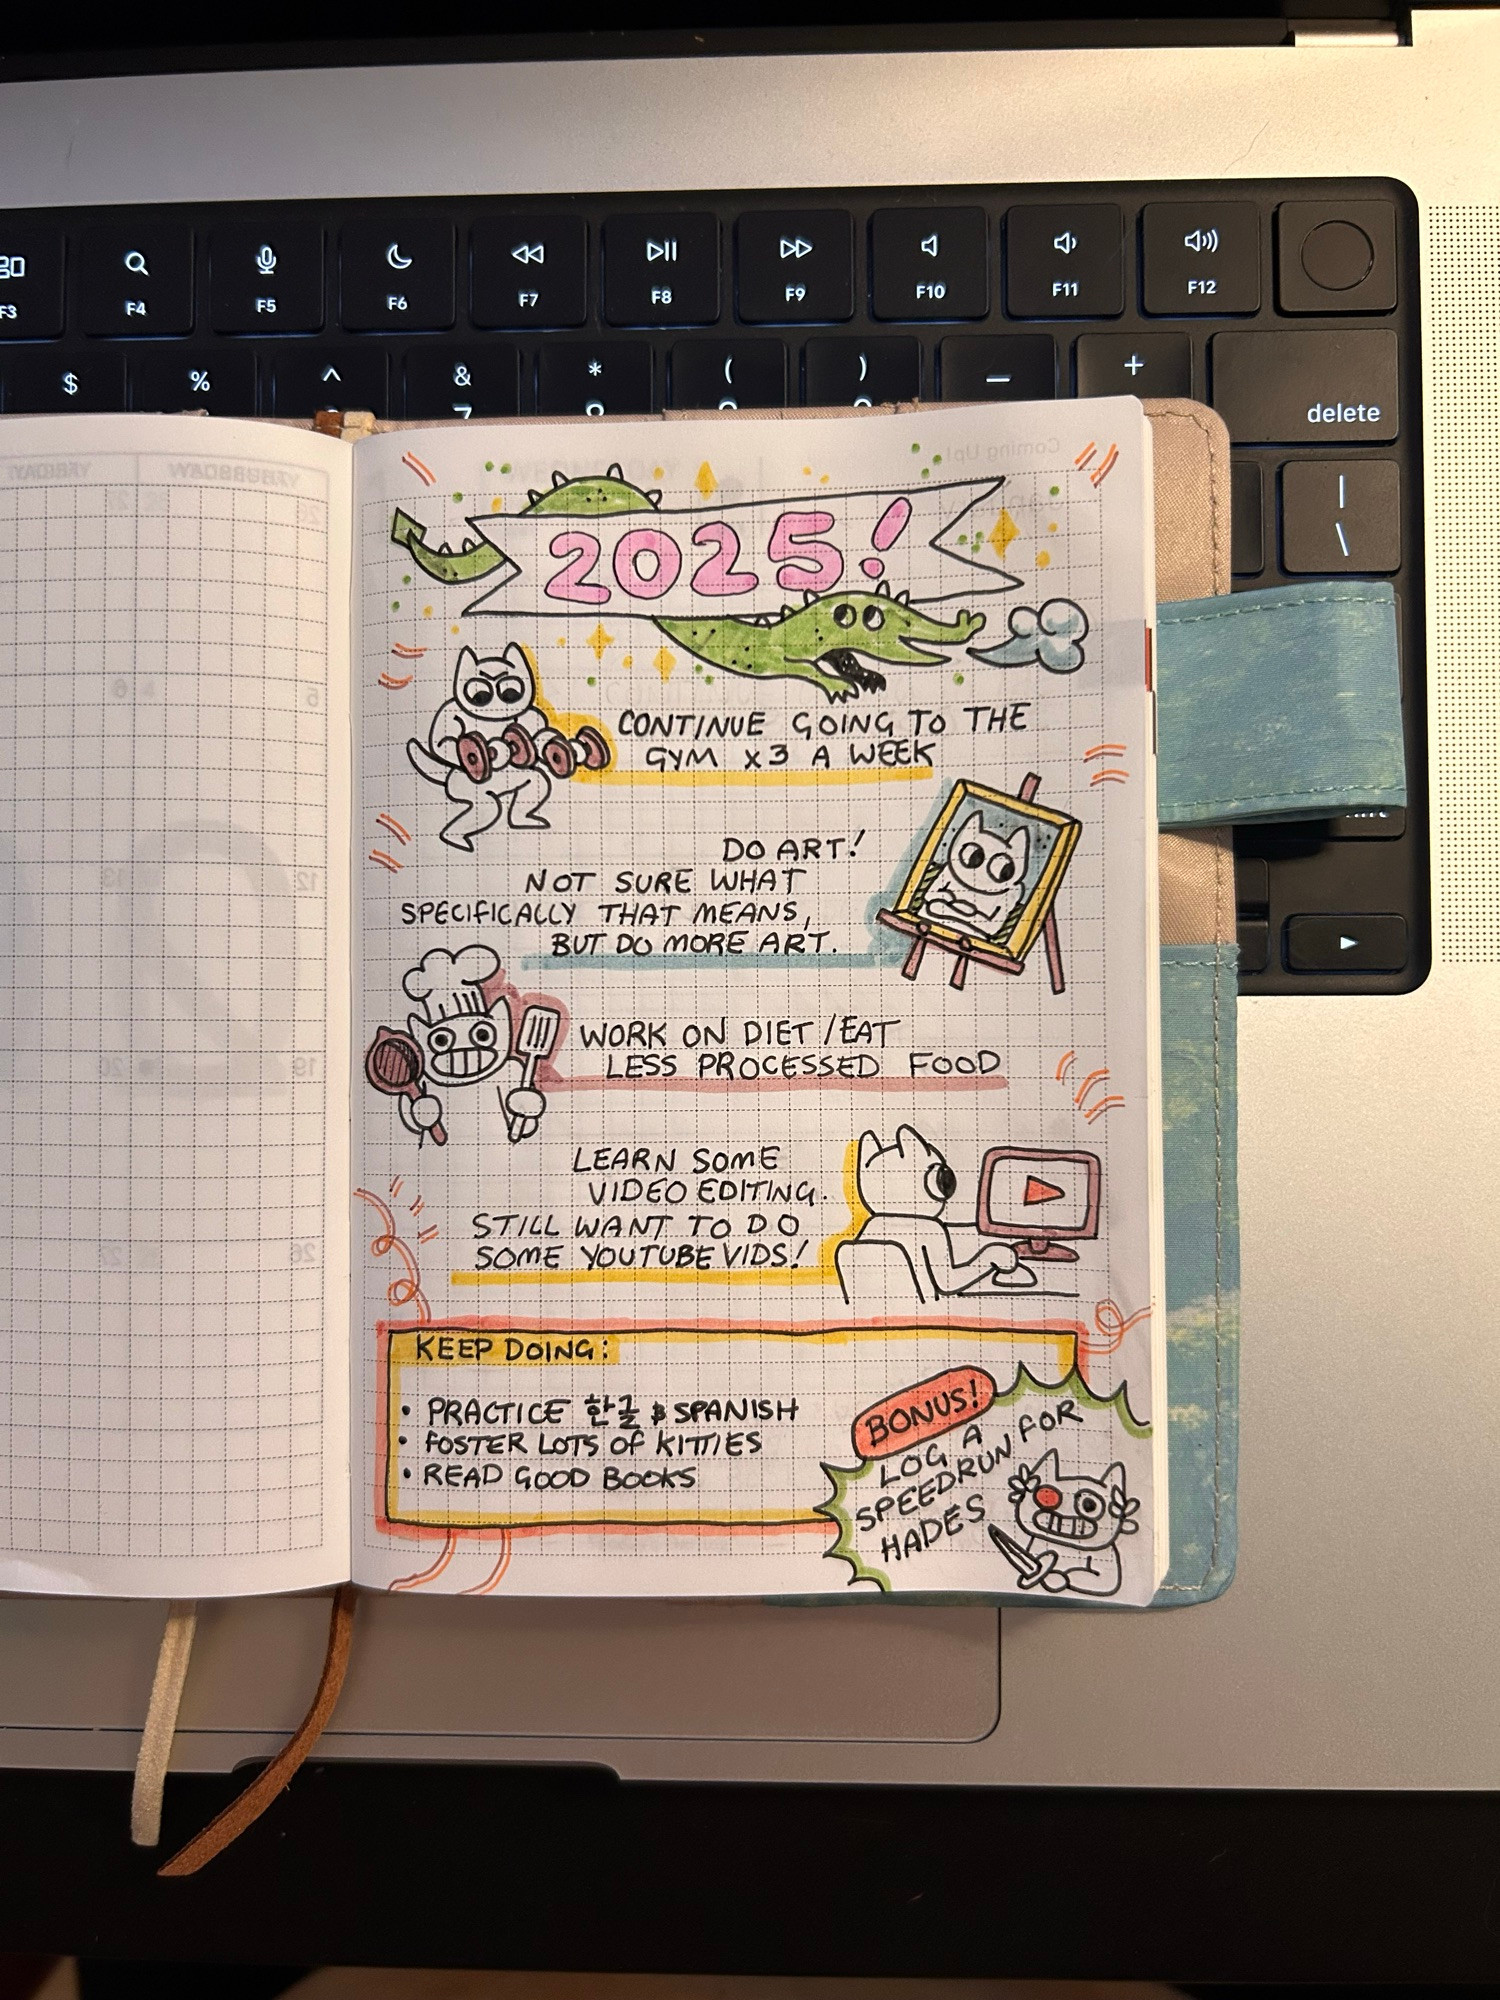 F3
F4
F5
F6
F7
F8
F9
F10
F11
F12
$
%
^
&
7
*
(
)
_
+
delete
|
\
Coming Up!
2025!
CONTINUE GOING TO THE
GYM x3 A WEEK
DO ART!
NOT SURE WHAT
SPECIFICALLY THAT MEANS,
BUT DO MORE ART.
WORK ON DIET/EAT
LESS PROCESSED FOOD
LEARN SOME
VIDEO EDITING.
STILL WANT TO DO
SOME YOUTUBE VIDS!
KEEP DOING:
• PRACTICE 한글 & SPANISH
• FOSTER LOTS OF KITTIES
• READ GOOD BOOKS
BONUS!
LOG A
SPEEDRUN FOR
HADES
5
12
13
19
20
26
27